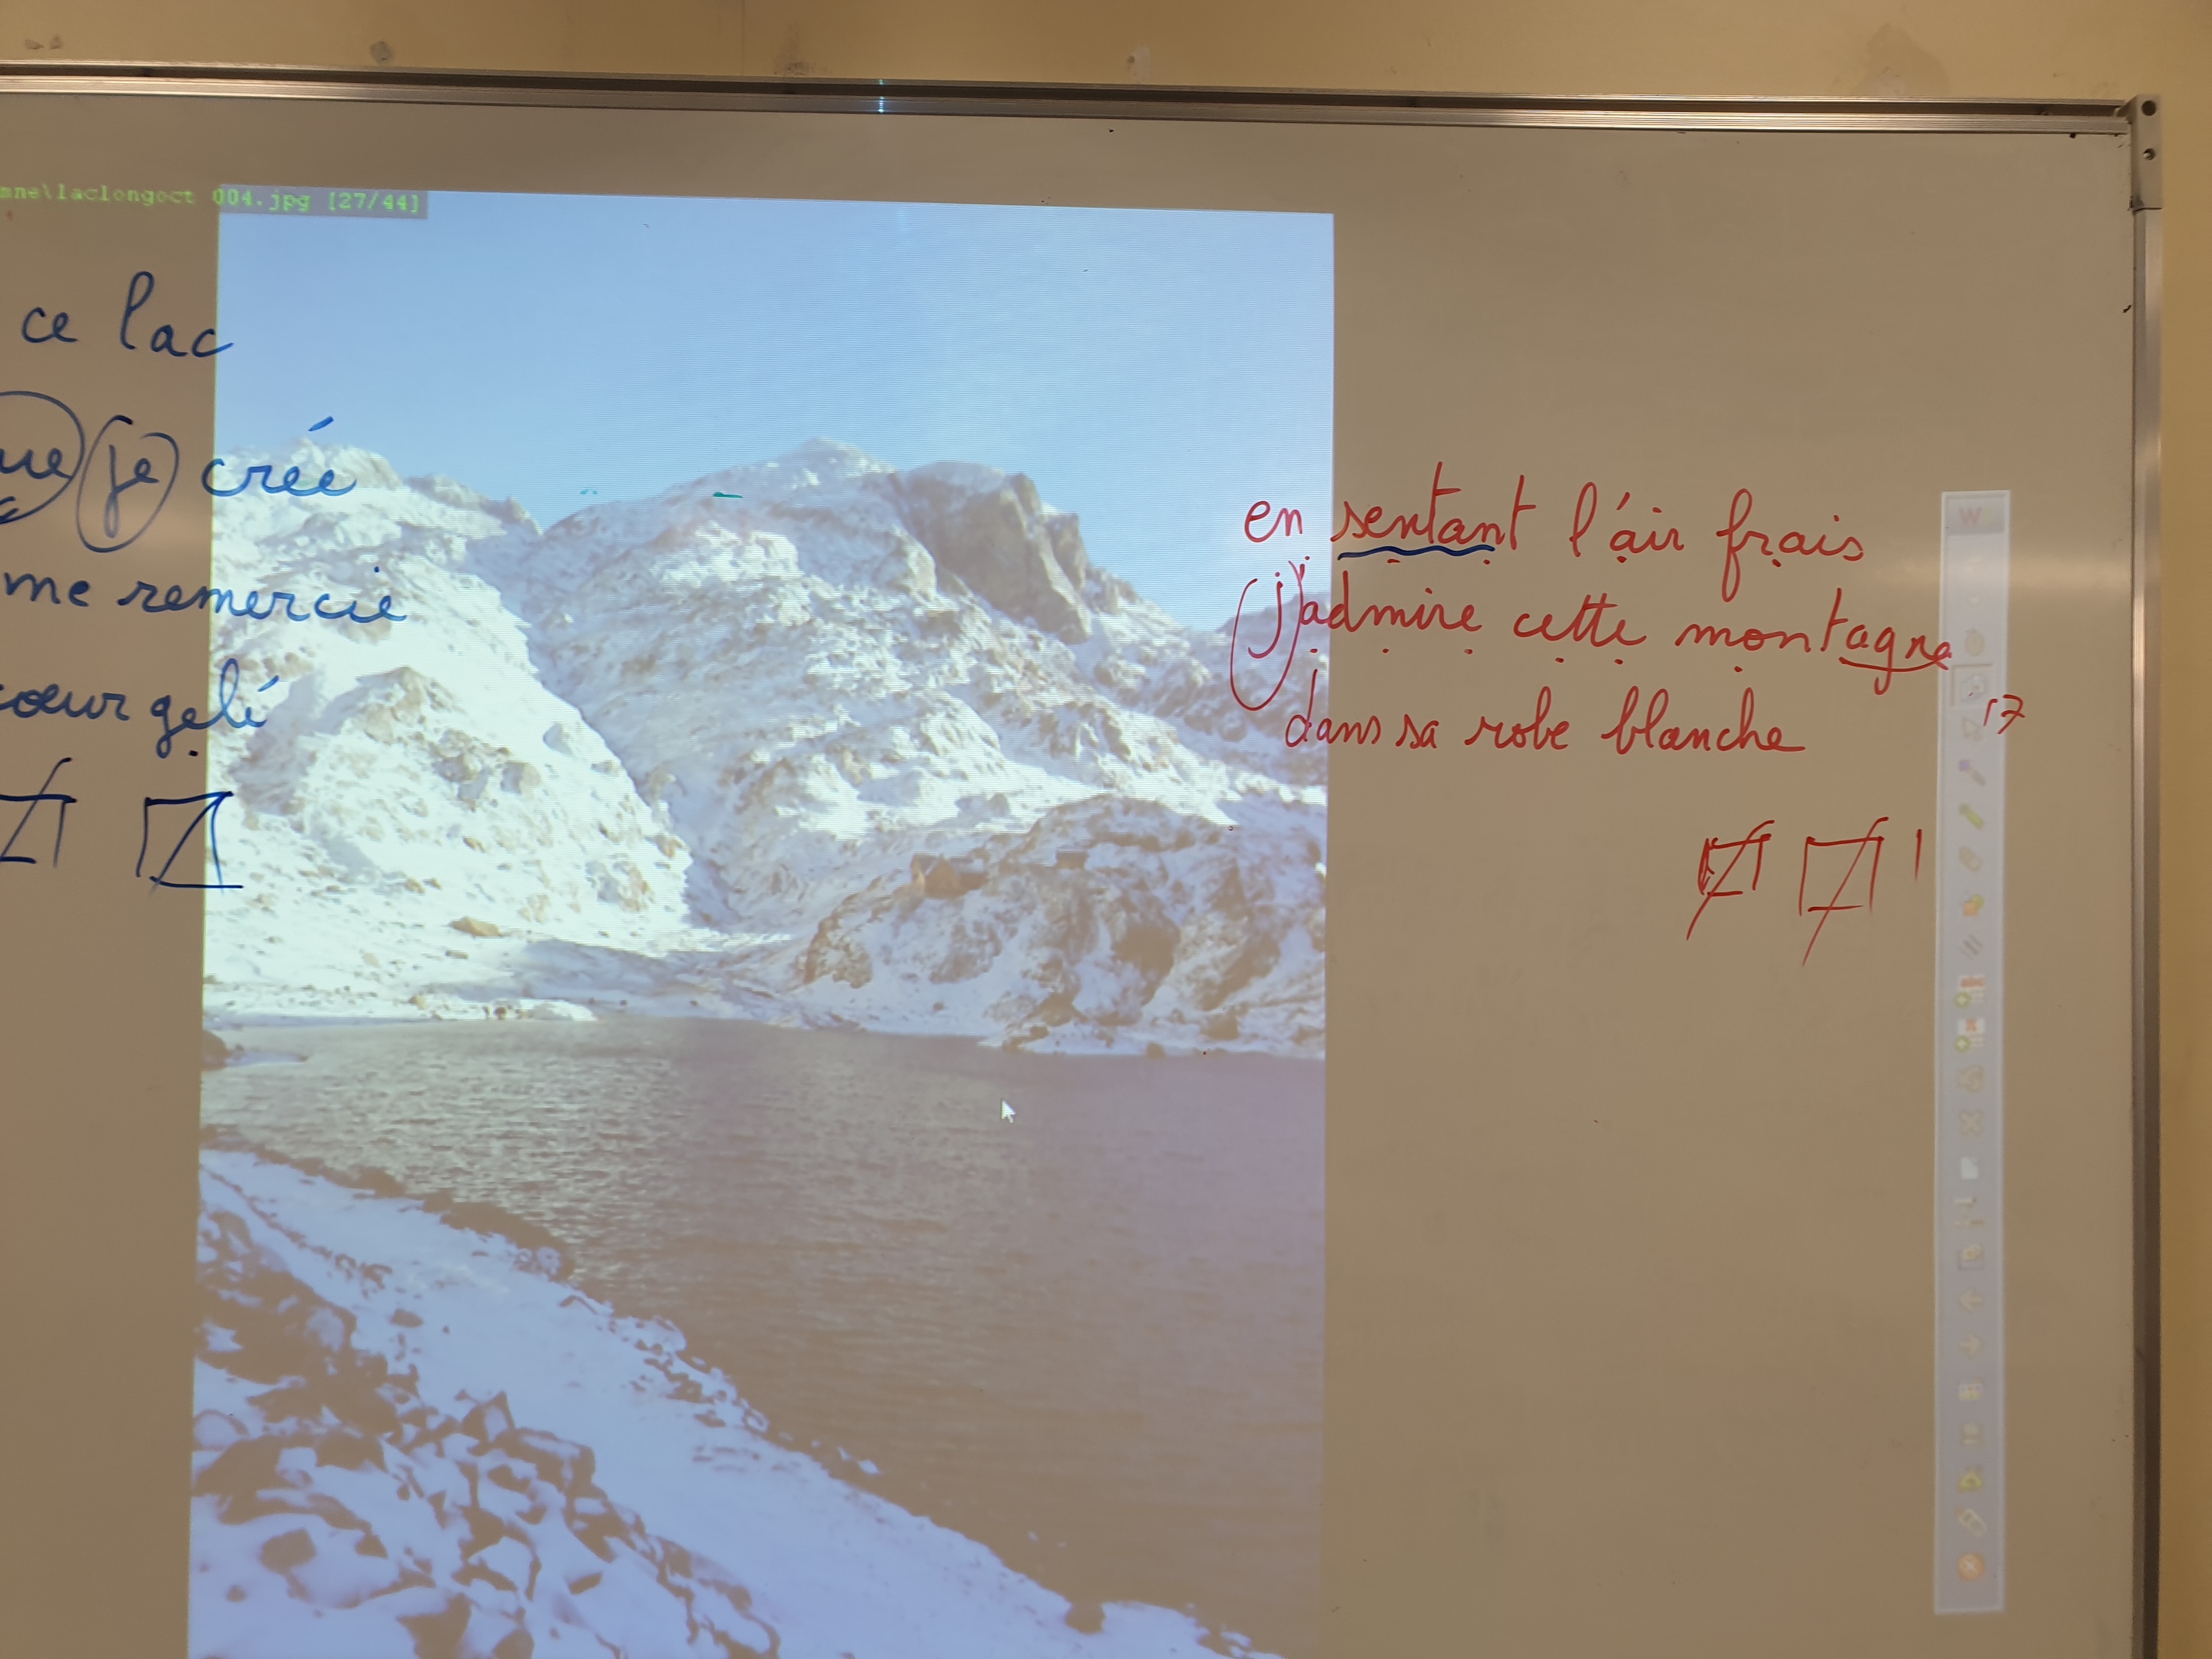 laclongoct 004.jpg [27/44]
ce lac
je crée
me remercie
cœur gelé
en sentant l'air frais
j'admire cette montagne
dans sa robe blanche
17
W